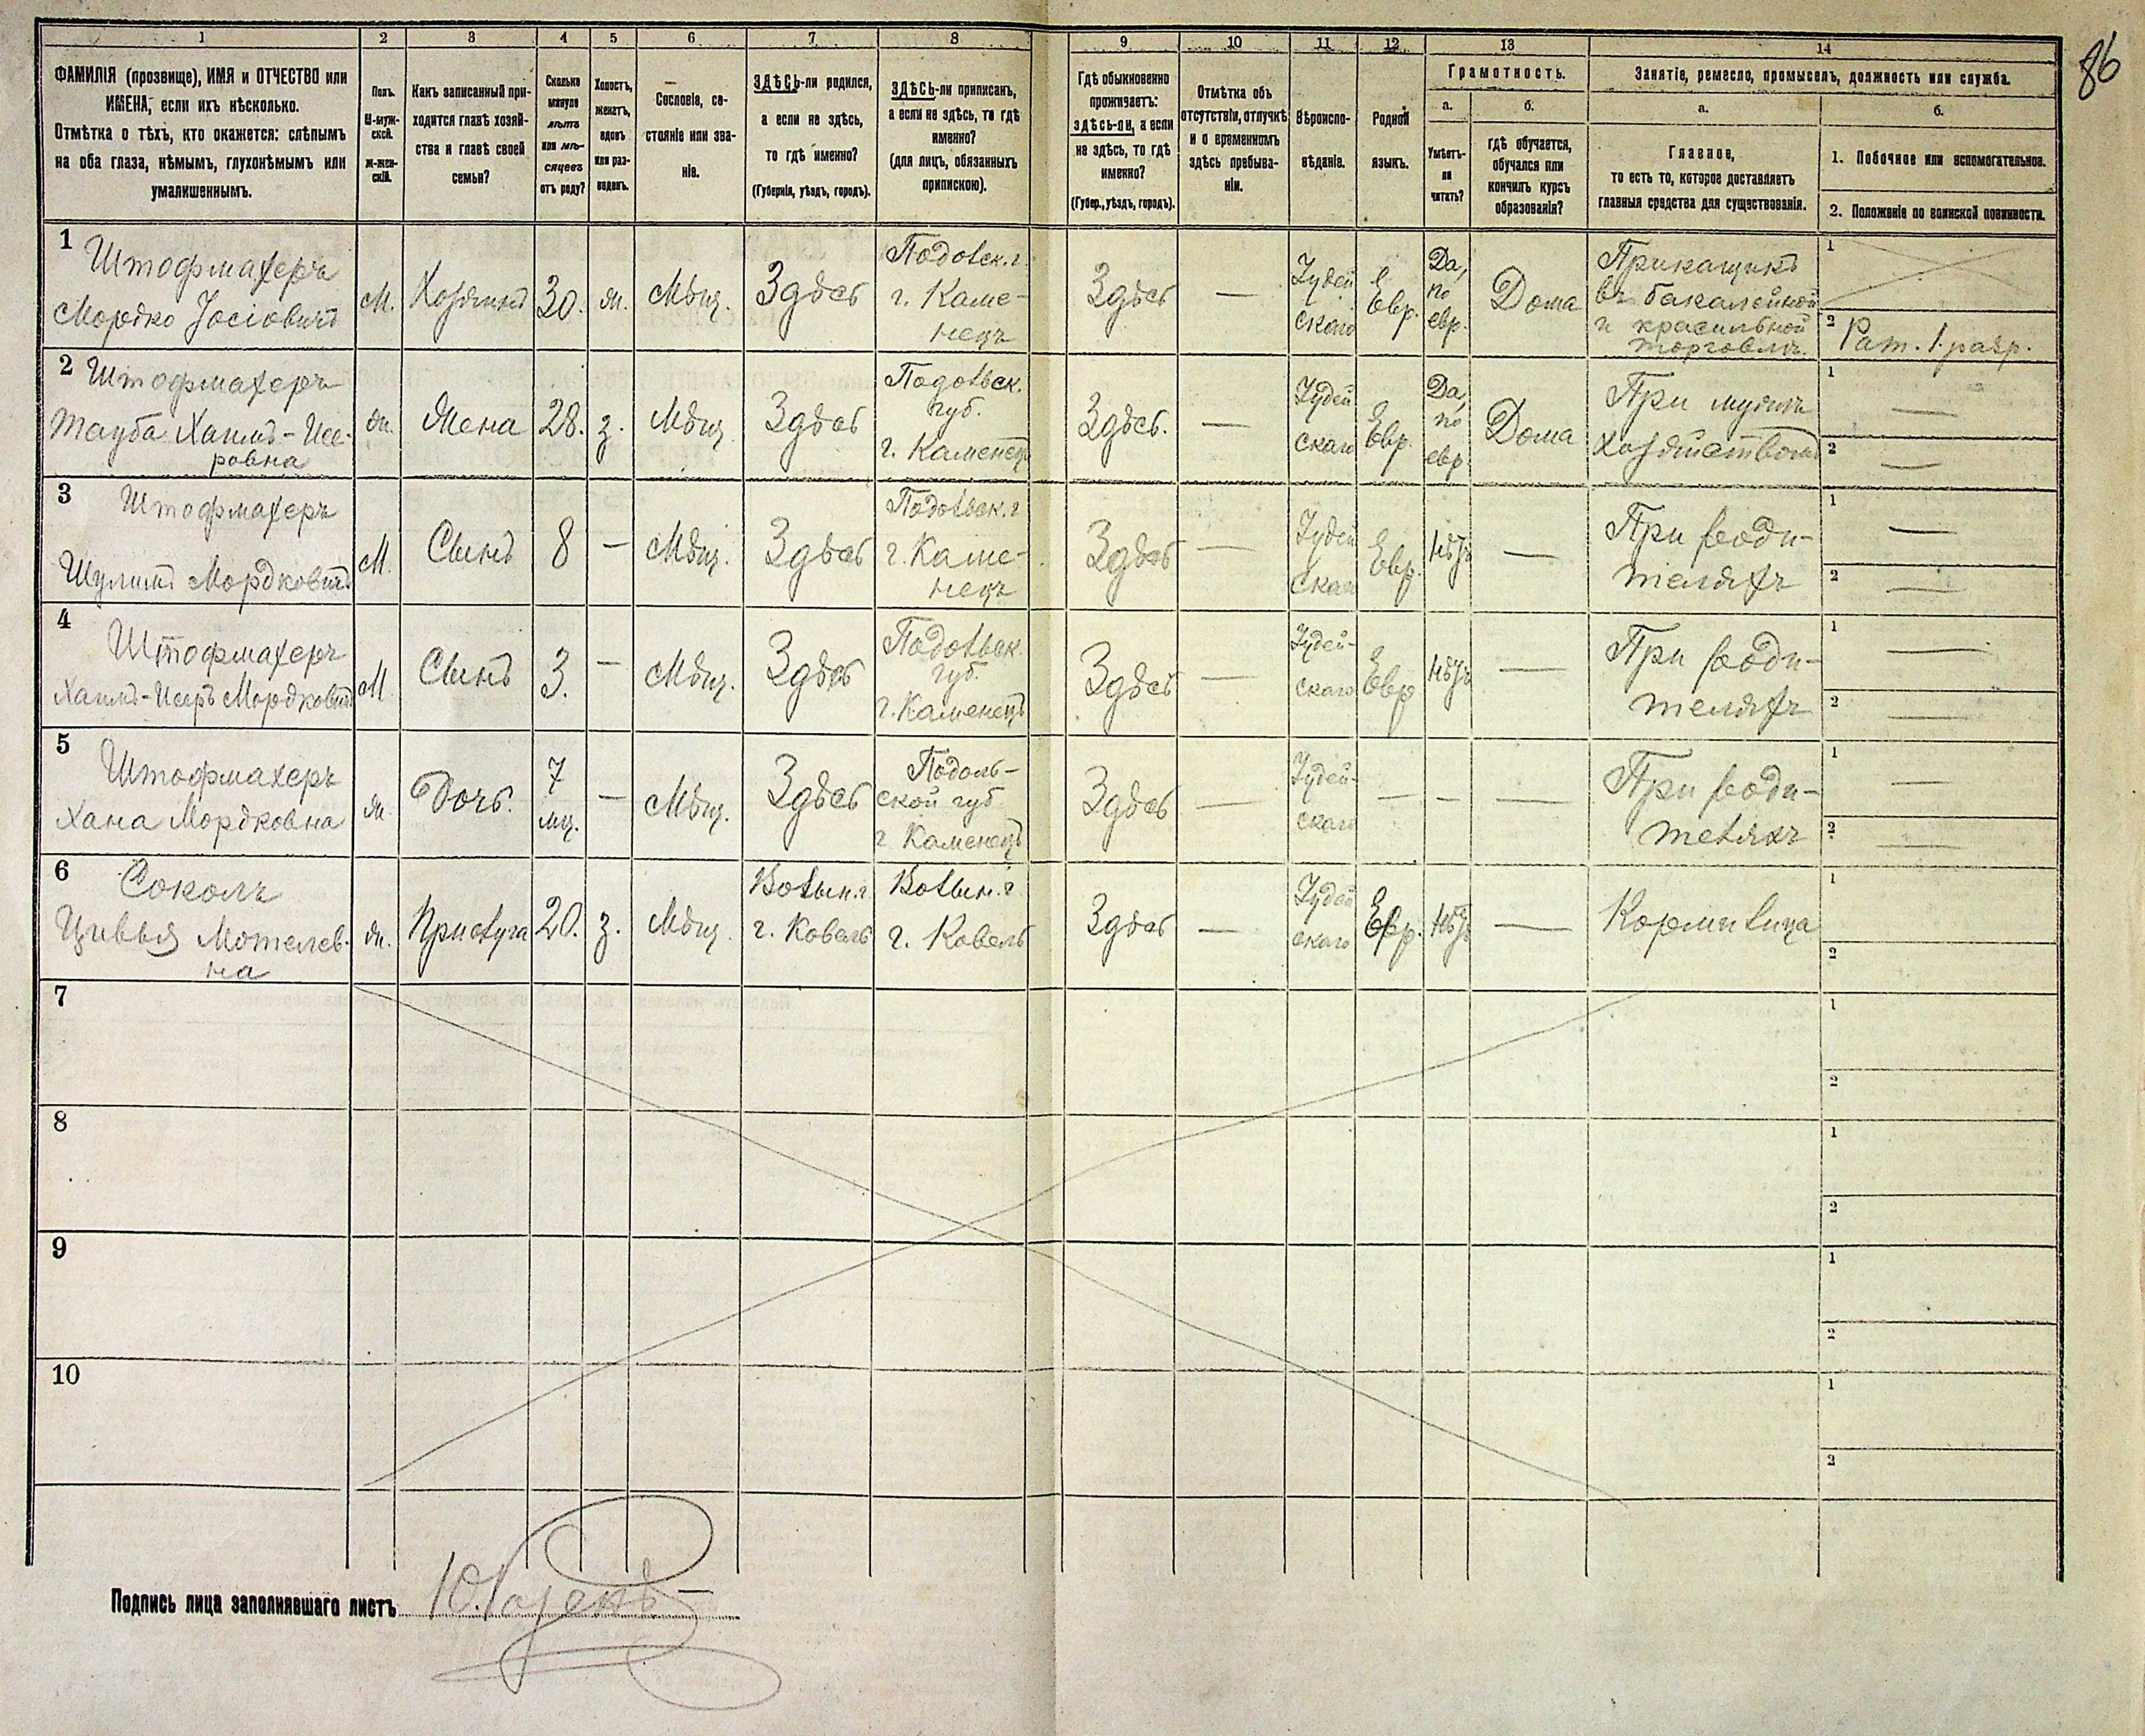 86
1
2
3
4
5
6
7
8
9
10
11
12
13
14
ФАМИЛІЯ (прозвище), ИМЯ и ОТЧЕСТВО или
ИМЕНА, если ихъ нѣсколько.
Отмѣтка о тѣхъ, кто окажется: слѣпымъ
на оба глаза, нѣмымъ, глухонѣмымъ или
умалишеннымъ.
Полъ.
М-муж-
ской.
Ж-жен-
скій.
Какъ записанный при-
ходится главѣ хозяй-
ства и главѣ своей
семьи?
Сколько
минуло
лѣтъ
или мѣ-
сяцевъ
отъ роду?
Холостъ,
женатъ,
вдовъ
или раз-
веденъ.
Сословіе, со-
стояніе или зва-
ніе.
ЗДѢСЬ-ли родился,
а если не здѣсь,
то гдѣ именно?
(Губернія, уѣздъ, городъ).
ЗДѢСЬ-ли приписанъ,
а если не здѣсь, то гдѣ
именно?
(для лицъ, обязанныхъ
припискою).
Гдѣ обыкновенно
проживаетъ:
здѣсь-ли, а если
не здѣсь, то гдѣ
именно?
(Губер., уѣздъ, городъ).
Отмѣтка объ
отсутствіи, отлучкѣ
и о временномъ
здѣсь пребыва-
ніи.
Вѣроиспо-
вѣданіе.
Родной
языкъ.
Грамотность.
а.
Умѣетъ-
ли
читать?
б.
гдѣ обучается,
обучался или
кончилъ курсъ
образованія?
Занятіе, ремесло, промыселъ, должность или служба.
а.
Главное,
то есть то, которое доставляетъ
главныя средства для существованія.
б.
1. Побочное или вспомогательное.
2. Положеніе по воинской повинности.
1
Штофмахеръ
Мордко Іосіовичъ
М.
Хозяинъ
30.
ж.
Мѣщ.
Здѣсь
Подольск. г.
г. Каме-
нецъ
Здѣсь
—
Іудей
скаго
Евр.
Да,
по
евр.
Дома
Прикащикъ
въ бакалейной
и красильной
торговлѣ.
1
2 Рат. 1. разр.
2
Штофмахеръ
Тауба Хаимъ-Исе-
ровна
ж.
Жена
28.
з.
Мѣщ.
Здѣсь
Подольск.
губ.
г. Каменецъ
Здѣсь.
—
Іудей
скаго
Евр.
Да,
по
евр.
Дома
При мужѣ
хозяйствомъ
1 —
2 —
3
Штофмахеръ
Шулимъ Мордковичъ
М.
Сынъ
8
—
Мѣщ.
Здѣсь
Подольск. г
г. Каме-
нецъ
Здѣсь
—
Іудей
скаго
Евр.
Нѣтъ
—
При роди-
теляхъ
1 —
2 —
4
Штофмахеръ
Хаимъ-Исеръ Мордковичъ
М
Сынъ
3.
—
Мѣщ.
Здѣсь
Подольск.
губ.
г. Каменецъ
Здѣсь
—
Іудей-
скаго
Евр
Нѣтъ
—
При роди-
теляхъ
1 —
2 —
5
Штофмахеръ
Хана Мордковна
ж.
Дочь.
7
мц.
—
Мѣщ.
Здѣсь
Подоль-
ской губ
г Каменецъ
Здѣсь
—
Іудей-
скаго
—
—
—
При роди-
теляхъ
1 —
2 —
6
Соколъ
Цивья Мотелев-
на
ж.
Прислуга
20.
з.
Мѣщ.
Волын. г.
г. Ковель
Волын. г
г. Ковель
Здѣсь
—
Іудей
скаго
Евр.
Нѣтъ
—
Кормилица
1
2
7
1
2
8
1
2
9
1
2
10
1
2
Подпись лица заполнявшаго листъ